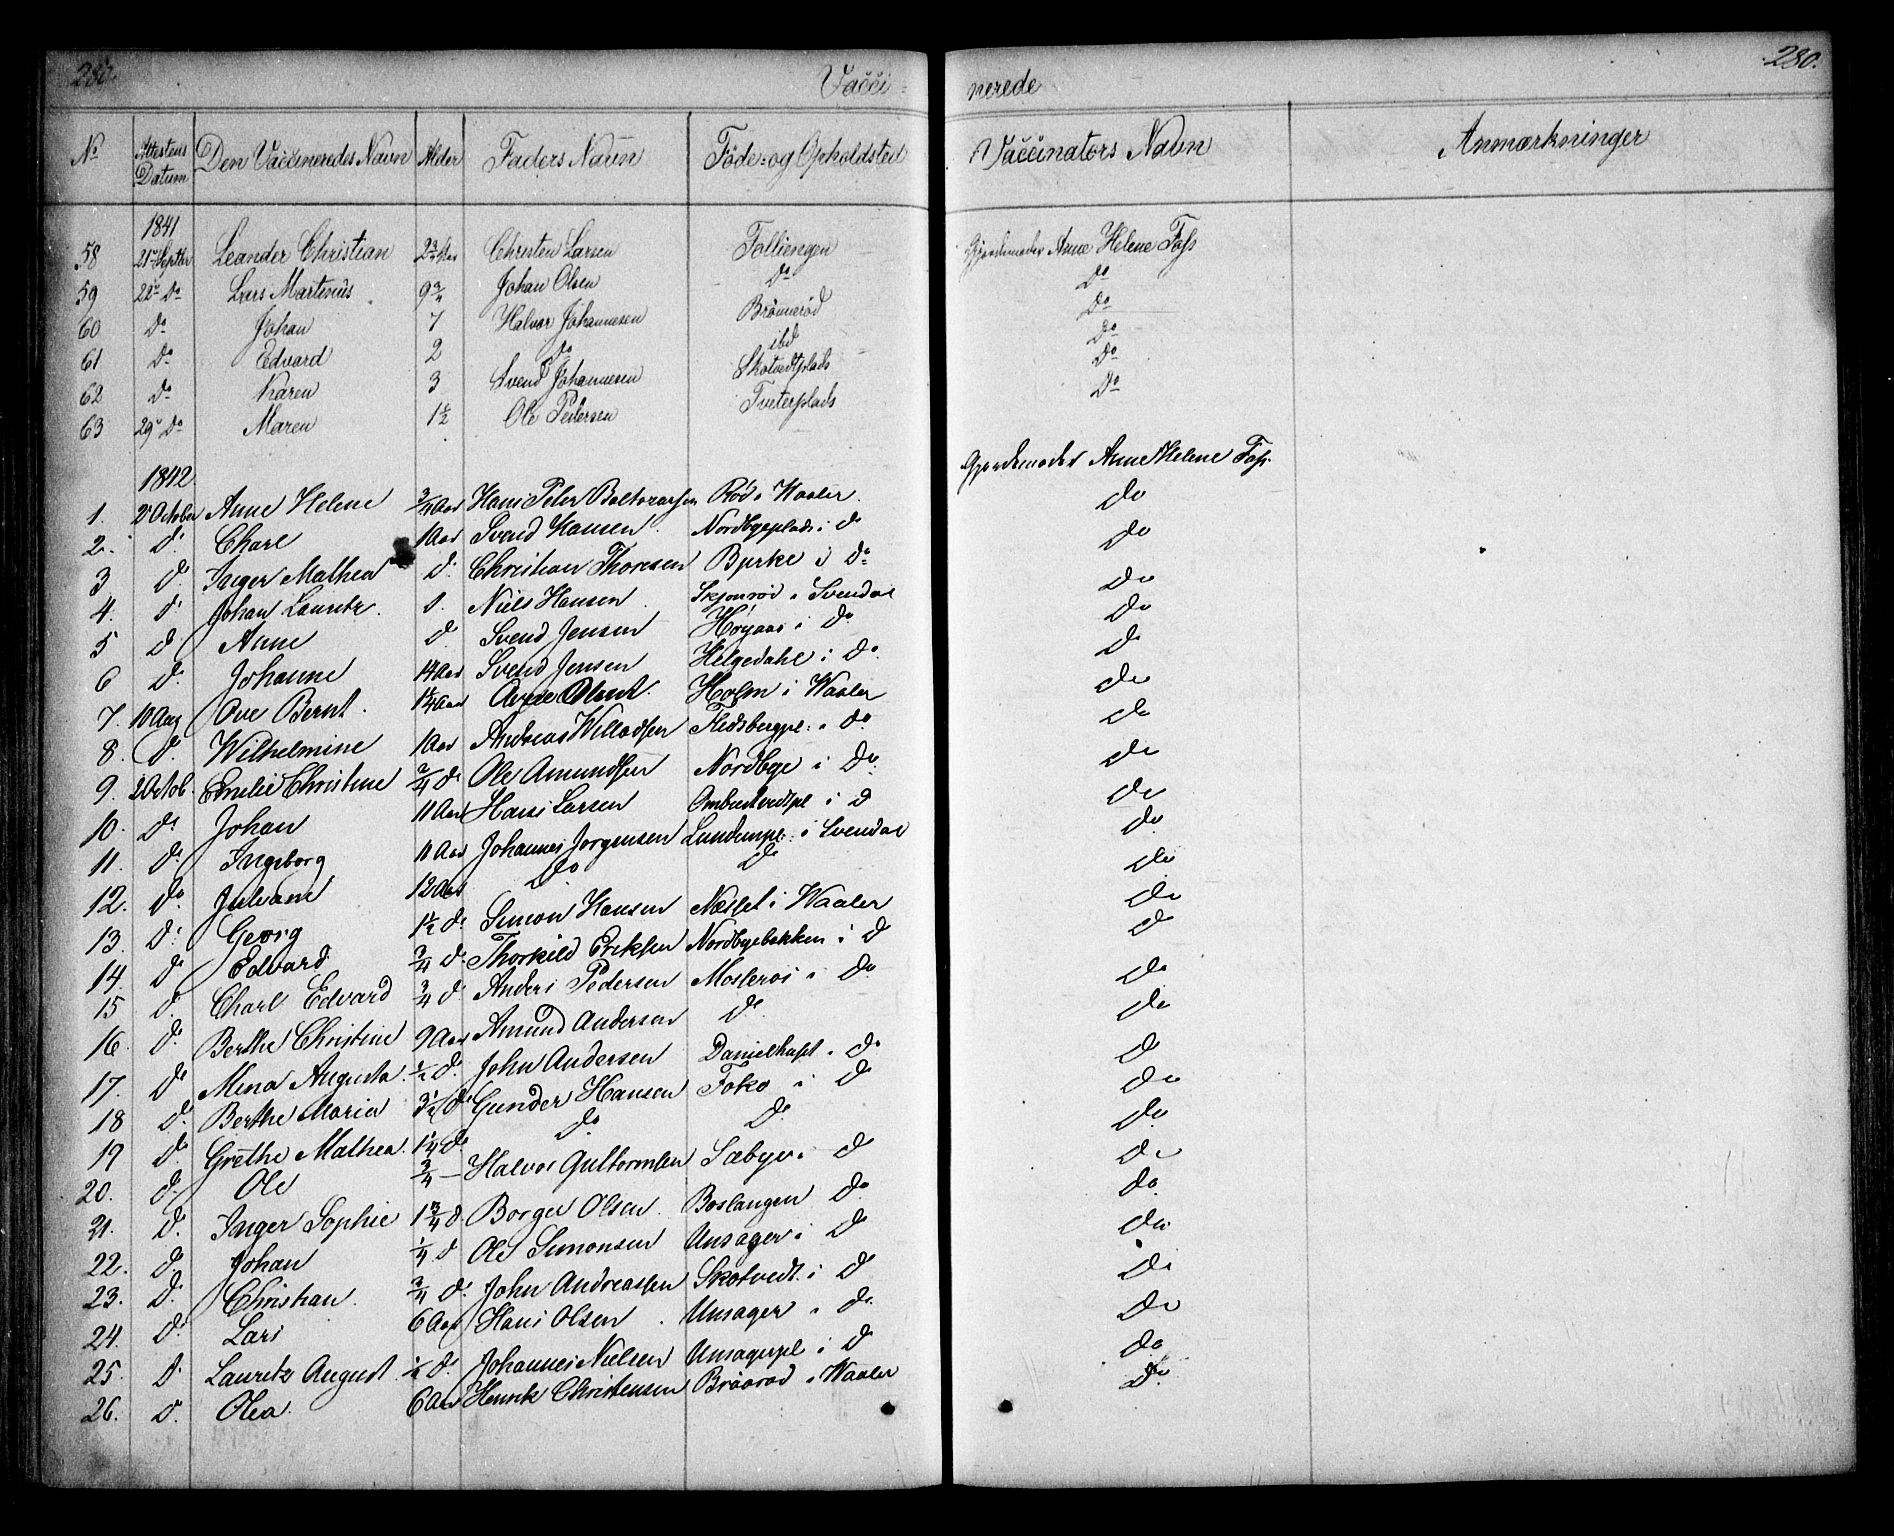 280. Vacci= nerede 280.
No Attestens Datum Den Vaccineredes Navn Alder Faders Navn Føde= og Opholdsted Vaccinators Navn Anmærkninger
1841
58 21de Septbr Leander Christian 2 3/4 Aar Christen Larsen Folliengen Gjordemoder Anne Helene Foss
59 22de Do Lars Martinus 9 3/4 Johan Olsen Do Do
60 Do Johan 7 Halvor Johannesen Brønnerød Do
61 Do Edvard 2 Do ibd Do
62 Do Karen 3 Svend Johannesen Skotvedtplads Do
63 29de Do Maren 1 1/2 Ole Pedersen Tveterplads Do
1842 Gjordemoder Anne Helene Foss
1. 2de October Anne Helene 3/4 Aar Hans Peter Baltzarsen Rød i Waaler. do
2. Do Charl 1 Aar Svend Hansen Nordbyeplads i do do
3 Do Inger Mathea d. Christian Thoresen Bjerke i Do do
4. d. Johan Lauritz. d. Niels Hansen Skjonrød i Svendal do
5 d. Anne d. Svend Jensen Høyaas i Do do
6 D. Johanne 14 Aar Svend Jensen Helgedahl i Do. do
7. 10 Aug Ove Bernt. 1 1/4 Aar Holm i Waaler do
8. D. Wilhelmine 1 Aar Andreas Willadsen Flesbergpl. i do. do
9. 2 Octob. Emilie Christine 3/4 do Ole Amundsen Nordbye i Do. do
10. Do Johan 11 Aar Hans Larsen i D do
11. D. Ingeborg 11 Aar Johannes Jorgensen Lundempl. i Svendal do
12. Do Juliane 12 Aar Do do do
13. D. Georg 1 1/2 do Simon Hansen Næsset i Waaler do
14. D Edvard 3/4 do Thorkild Eriksen Nordbyebakken i D do
15 D. Charl Edvard 3/4 d. Anders Pedersen Mosterøi i do do
16. D. Berthe Christine 9 Aar Amund Andersen do do
17. Do Mena Augusta. 1/2 D. John Andersen i do do
18 D. Berthe Maria 3 1/2 do Gunder Hansen Foko i D do
19 D. Grethe Mathea. 1 1/4 do Do Do do
20. d. Ole 3/4 — Halvor Guttormsen Sæbye i do do
21. D. Inger Sophie 1 3/4 d. Borger Olsen. Boslangen Do do.
22. D. Johan 1/4 d Ole Simonsen Unsager i D do
23. D. Christian. 3/4 D. John Andreassen Skotvedt. i D do
24. D. Lars 6 Aar Hans Olsen Unsager i do. do
25. D Lauritz August. do Johannes Nielsen Unsagerpl i D do
26. D. Olea. 6 Aar Henrik Christensen Braarød i Waaler do